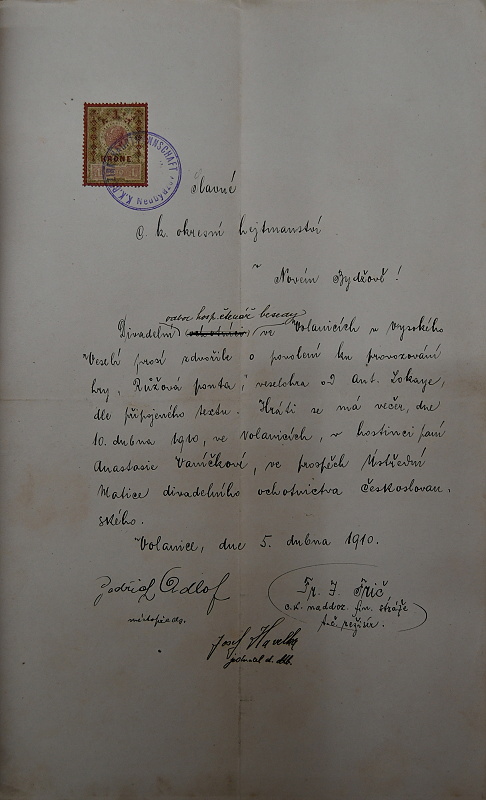 KRONE
Slavné
C. k. okresní hejtmanství
v Novém Bydžově!
odbor hosp. čtenář. besedy
Divadelní (ochotníci) ve Volanicích u Vysokého
Veselí prosí zdvořile o povolení ku provozování
hry „Růžová psota", veselohra od Ant. Lokaye,
dle připojeného textu. Hráti se má večer, dne
10. dubna 1910, ve Volanicích, v hostinci paní
Anastasie Vaníčkové, ve prospěch Ústřední
Matice divadelního ochotnictva českoslovan-
ského.
Volanice, dne 5. dubna 1910.
Jindřich Adlof
místopředs.
Fr. J. Frič,
c. k. naddoz. fin. stráže
t. č. režisér.
Josef Havelka
jednatel d. odb.